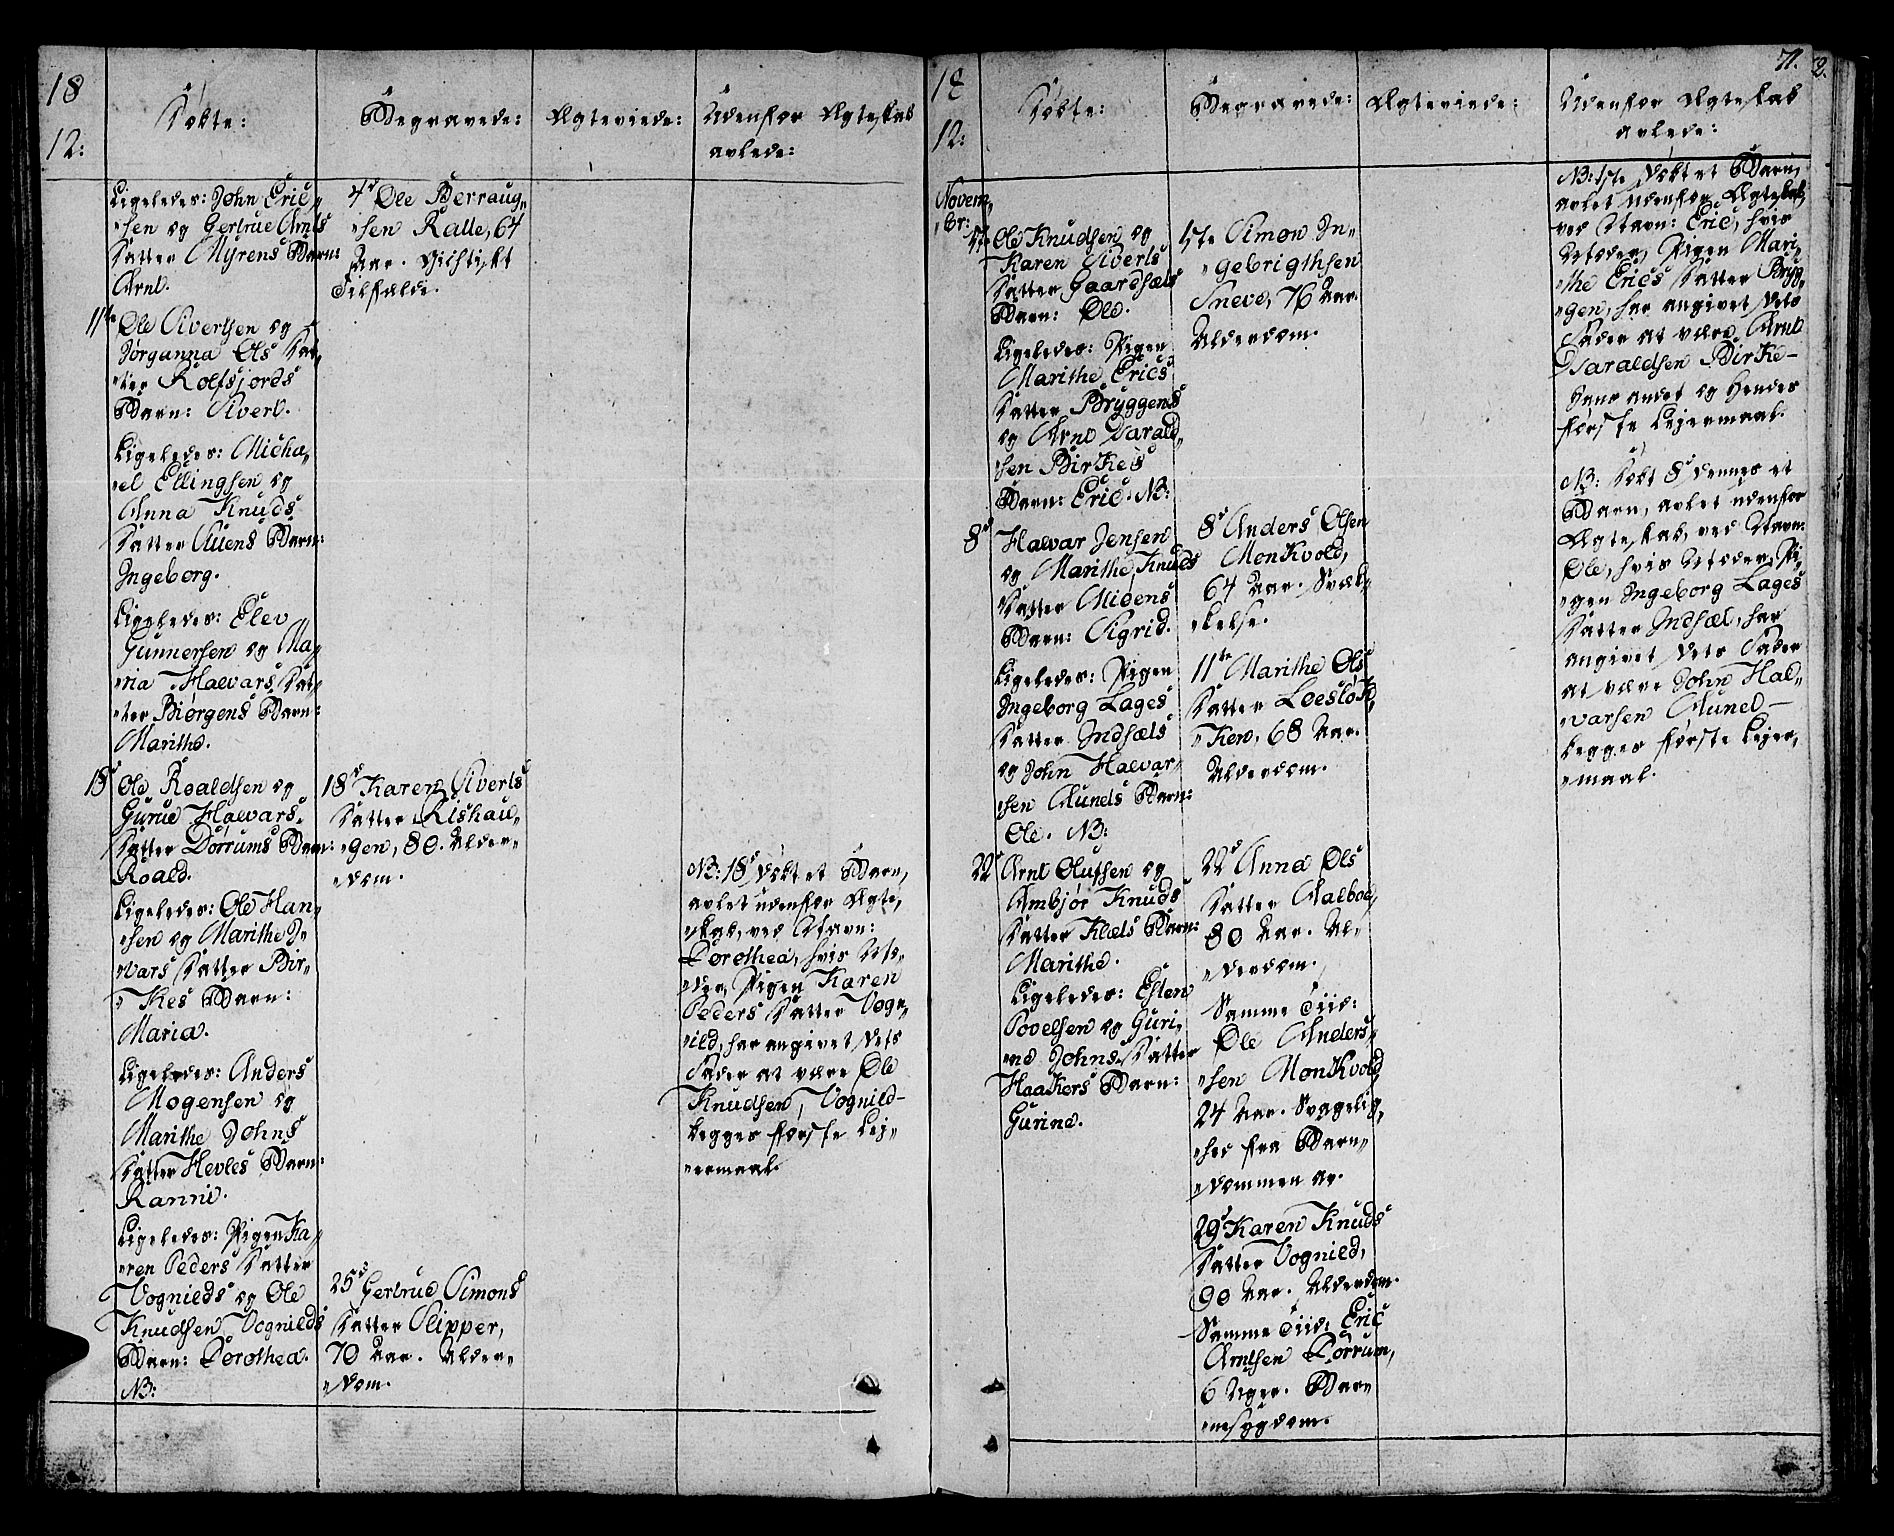 18
12:
Døbte:
Begravede:
Ægteviede:
Udenfor Ægteskab
avlede:
Ligeledes: John Eric-
-sen og Gertrue Arnts
Datter Myrens Barn:
Arnt.
11te Ole Sivertsen og
Jørganna Ols Dat-
-ter Rolfsjords
Barn: Sivert.
Ligeledes: Micha-
-el Ellingsen og
Anna Knuds
Datter Auens Barn:
Ingeborg.
Ligeledes: Elev
Gunnersen og Ma-
-ria Halvars Dat-
-ter Biørgens Barn:
Marithe.
18d Ole Roaldsen og
Gurue Halvars
Datter Dørrums Barn:
Roald.
Ligeledes: Ole Han-
-sen og Marithe I-
-vars Datter Bir-
-kes Barn:
Maria.
Ligeledes: Anders
Mogensen og
Marithe Johns
Datter Hevles Barn:
Ranni.
Ligeledes: Pigen Ka-
-ren Peders Datter
Vognilds og Ole
Knudsen Vognilds
Barn: Dorothea.
NB:
4d Ole Berraug-
-sen Ralle, 64
Aar. Gichtiskt
Tilfælde.
18d Karen Siverts
Datter Rishau-
-gen, 80. Alder-
-dom.
25d Gertrud Simons
Datter Slipper,
70 Aar. Alder-
-dom.
NB: 18d Døbt et Barn,
avlet udenfor Ægte-
-skab, ved Navn:
Dorothea, hvis Mo-
-der, Pigen Karen
Peders Datter Vogn-
-ild, har angivet dets
Fader at være Ole
Knudsen, Vognild-
begges første Lej-
-ermaal.
71.
2.
18
12:
Døbte:
Begravede:
Ægteviede:
Udenfor Ægteskab
avlede:
Novem-
-br:
1ste Ole Knudsen og
Karen Siverts
Datter Gaardsæls
Barn: Ole.
Ligeledes: Pigen
Marithe Erics
Datter Bryggens
og Arnt Harald-
-sen Birkes
Barn: Eric. NB:
8d Halvar Jensen
og Marithe Knuds
Datter Midens
Barn: Sigrid.
Ligeledes: Pigen
Ingeborg Lages
Datter Indsæls
og John Halvar-
-sen Aunets Barn:
Ole. NB:
22d Arnt Olufsen og
Ambjør Knuds
Datter Klæts Barn:
Marithe.
Ligeledes: Esten
Povelsen og Guri-
-ne Johns Datter
Haakers Barn:
Gurine.
1ste Simon In-
-gebrigthsen
Sneve, 76 Aar.
Alderdom.
8d Anders Olsen
Monkvold,
64 Aar. Svæk-
-kelse.
11te Marithe Ols
Datter Loesløk-
-ken, 68 Aar.
Alderdom.
22d Anna Ols
Datter Aalboe,
80 Aar. Al-
-derdom.
Samme Tiid:
Ole Anders-
-sen Monkvold,
24 Aar. Svagelig-
-hed fra Barn-
-dommen av.
29d Karen Knuds
Datter Vognild,
90 Aar. Alderdom.
Samme Tiid: Eric
Arntsen Dørrum,
6 Uger. Bar-
-nesygdom.
NB: 1ste Døbt et Barn,
avlet udenfor Ægteskab,
ved Navn: Eric, hvis
Moder, Pigen Mari-
-the Erics Datter Bryg-
-gen, har angivet dets
Fader at være Arnt
Haraldsen Birke-
Hans andet og Hendes
første Lejermaal.
NB: Døbt 8d dennes et
Barn, avlet udenfor
Ægteskab, ved Navn:
Ole, hvis Moder, Pi-
-gen Ingeborg Lages
Datter Indsæt, har
angivet dets Fader
at være John Hal-
-varsen Aunet-
begges første Lejer-
-maal.